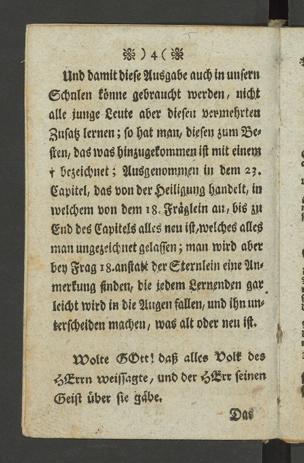 ❈ ) 4 ( ❈
Und damit diese Ausgabe auch in unsern
Schulen könne gebraucht werden, nicht
alle junge Leute aber diesen vermehrten
Zusatz lernen; so hat man, diesen zum Be-
sten, das was hinzugekommen ist mit einem
† bezeichnet; Ausgenommen in dem 23.
Capitel, das von der Heiligung handelt, in
welchem von dem 18. Fräglein an, bis zu
End des Capitels alles neu ist, welches alles
man ungezeichnet gelassen; man wird aber
bey Frag 18. anstatt der Sternlein eine An-
merkung finden, die jedem Lernenden gar
leicht wird in die Augen fallen, und ihn un-
terscheiden machen, was alt oder neu ist.
Wolte GOtt! daß alles Volk des
HErrn weissagte, und der HErr seinen
Geist über sie gäbe.
Das